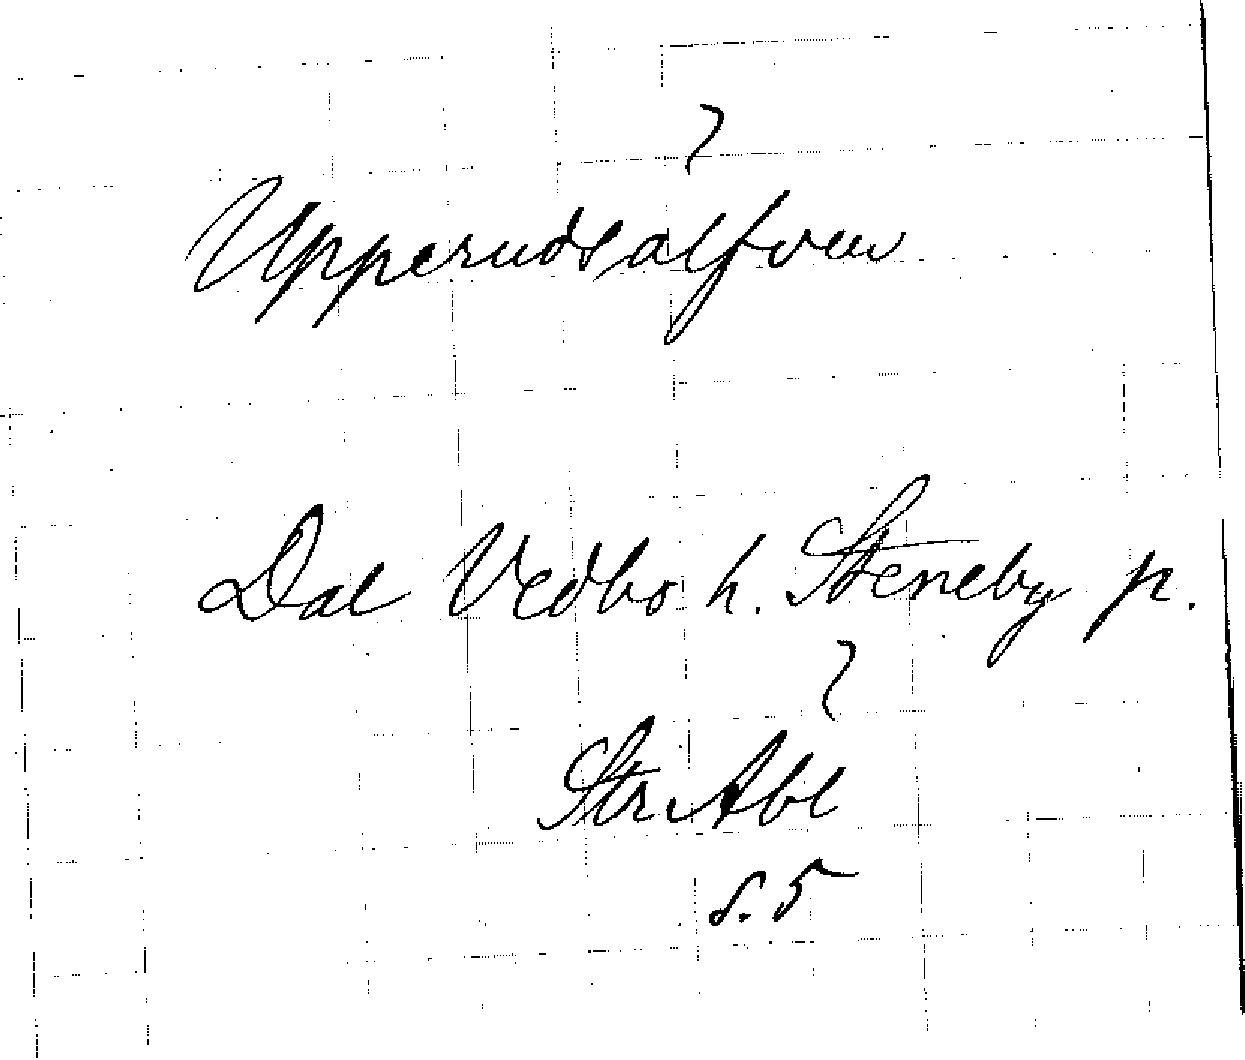 Upperudsälfven
Dal Vedbo h. Steneby p.
Str Abl
s. 5